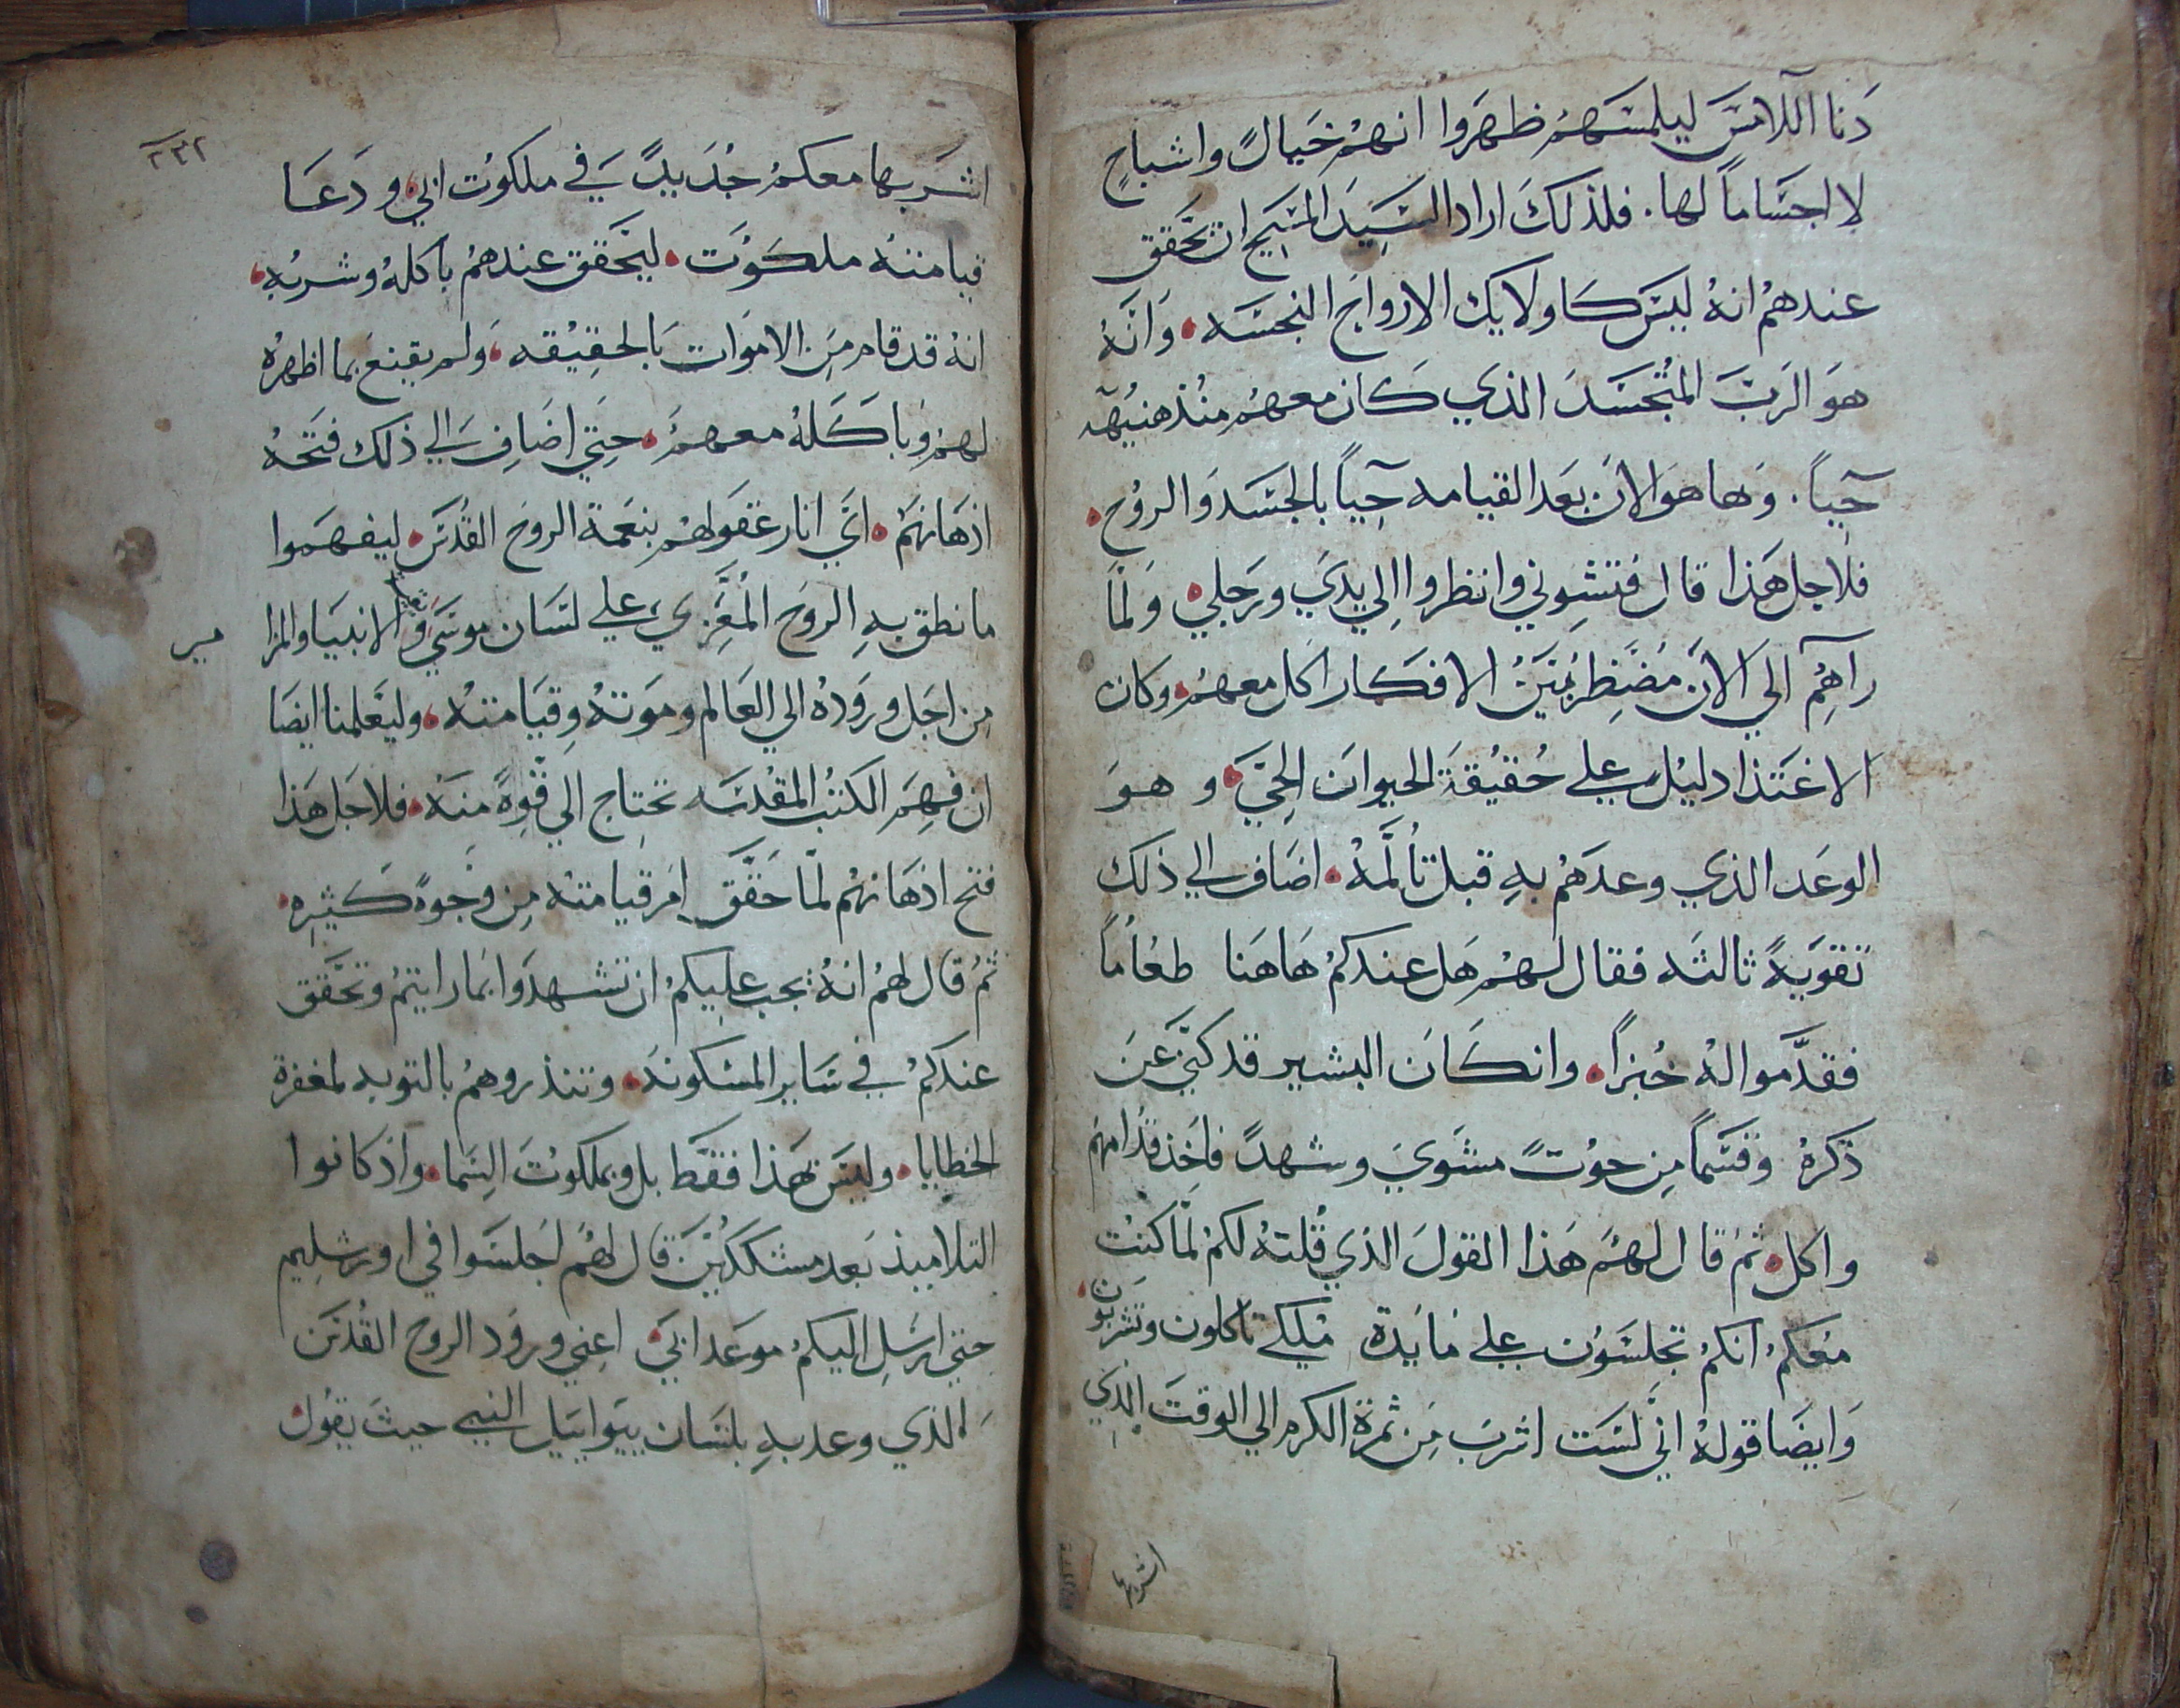 دَنا اللامسَ ليلمسَهمُ ظهَروا انهمُ خيالً واشباحٍ
لا اجسَاماً لها. فلذلكَ اراد السَيدَ المسَيح ان تحَقق
عندهمُ انهُ ليسَ كاولايك الارواحَ النجسَه، وَانّهُ
هوَ الرَبَ المتجسَّدَ الذي كان معهمُ منُذ هنيُهه
حيّاً. وَها هوَ الانَ بعَد القيامه حيّاً بالجسَد وَالروُح،
فلاجل هَذا قال فتشوني وانظروا الي يديَ ورَجليَ، وَلمّا
راهمُ الي الانَ مُضَطرِبيَنَ الافكار اكل معهمُ، وكان
الاغتَذا دليُل علي حُقيُقة الحيوان الحيَّ، وهوَ
الوعَد الذي وعدَهمُ بهِ قبل تألَّمهُ، اضَاف الي ذلك
تقويَةً ثالثَه فقال لهمُ هَل عندكمُ هَاهَنا طعُاماً
فقدَّموا لهُ خبُزاً، وانكاَن البشير قد كنّي عَن
ذكَرهُ وَقسَماً مِن حوُتً مشَويَ وشهدً فاخَذ قدُامهم
واكل، ثمُ قال لهمُ هَذا القولَ الذي قُلتهُ لكمُ لمّا كنُت
معُكمُ انكمُ تجلسَوُن علي مايَدة مُلكي تاكلون وتشربوُن،
وَايضَا قولهُ اني لسَت اشربَ مِن ثمرَة الكرم الي الوقت الذي
اشربها
٢٣٢
اشرَبها معكمُ جُدَيدً يَ في ملكوُت ابيَ، ودَعَا
قيامتهُ ملكوُت، ليحَقق عندهمُ باكلهُ وشربُه،
انهُ قد قام مَن الاموَات بَالحقيُقه، وَلم يقنعَ بما اظهرُه
لهمُ وَباكلَهُ معهمُ، حتيَ اضَاف الي ذلك فتَحهُ
اذهَانهَمُ، ايَ انار عقوَلهمُ بنعَمة الروحَ القُدسَ، ليفهَموا
ما نطق بهِ الروحَ المُعَزيَ علي لسَان موسَي وَ الانبيَا والمزا
مير
مِن اجَل وروَدُه الي العَالم وموَتهُ وِقيَامتهُ، وليعَلمنا ايضَا
ان فهِمَ الكتبُ المقدسَه تحتاج الي قُوةً منهَ، فلاجَل هَذا
فتح اذهَانهُم لمّا حَقَّق امَر قيامتهُ مِن وجُوهً كثيره،
ثمُ قال لهمُ انهُ يجب عليكمُ ان تشهدَوا بمَا رايتمُ وتحَقق
عندكمُ في سَاير المسَكونَه، وتنذروهمُ بالتوبه لمغفرة
الخطايا، وليسَ بهَذا فقَط بل وبملكوُتَ السَما، واذ كانوا
التلاميذ بَعد مشككيُنَ قال لهمُ اجلسَوا في اورشليم
حتي ارسَل اليكمُ موعَد ابيَ، اعني وروَد الروحَ القُدسَ
الذي وعد بهِ بلسَان ييوايَيل النبي حيثَ يقوُل،